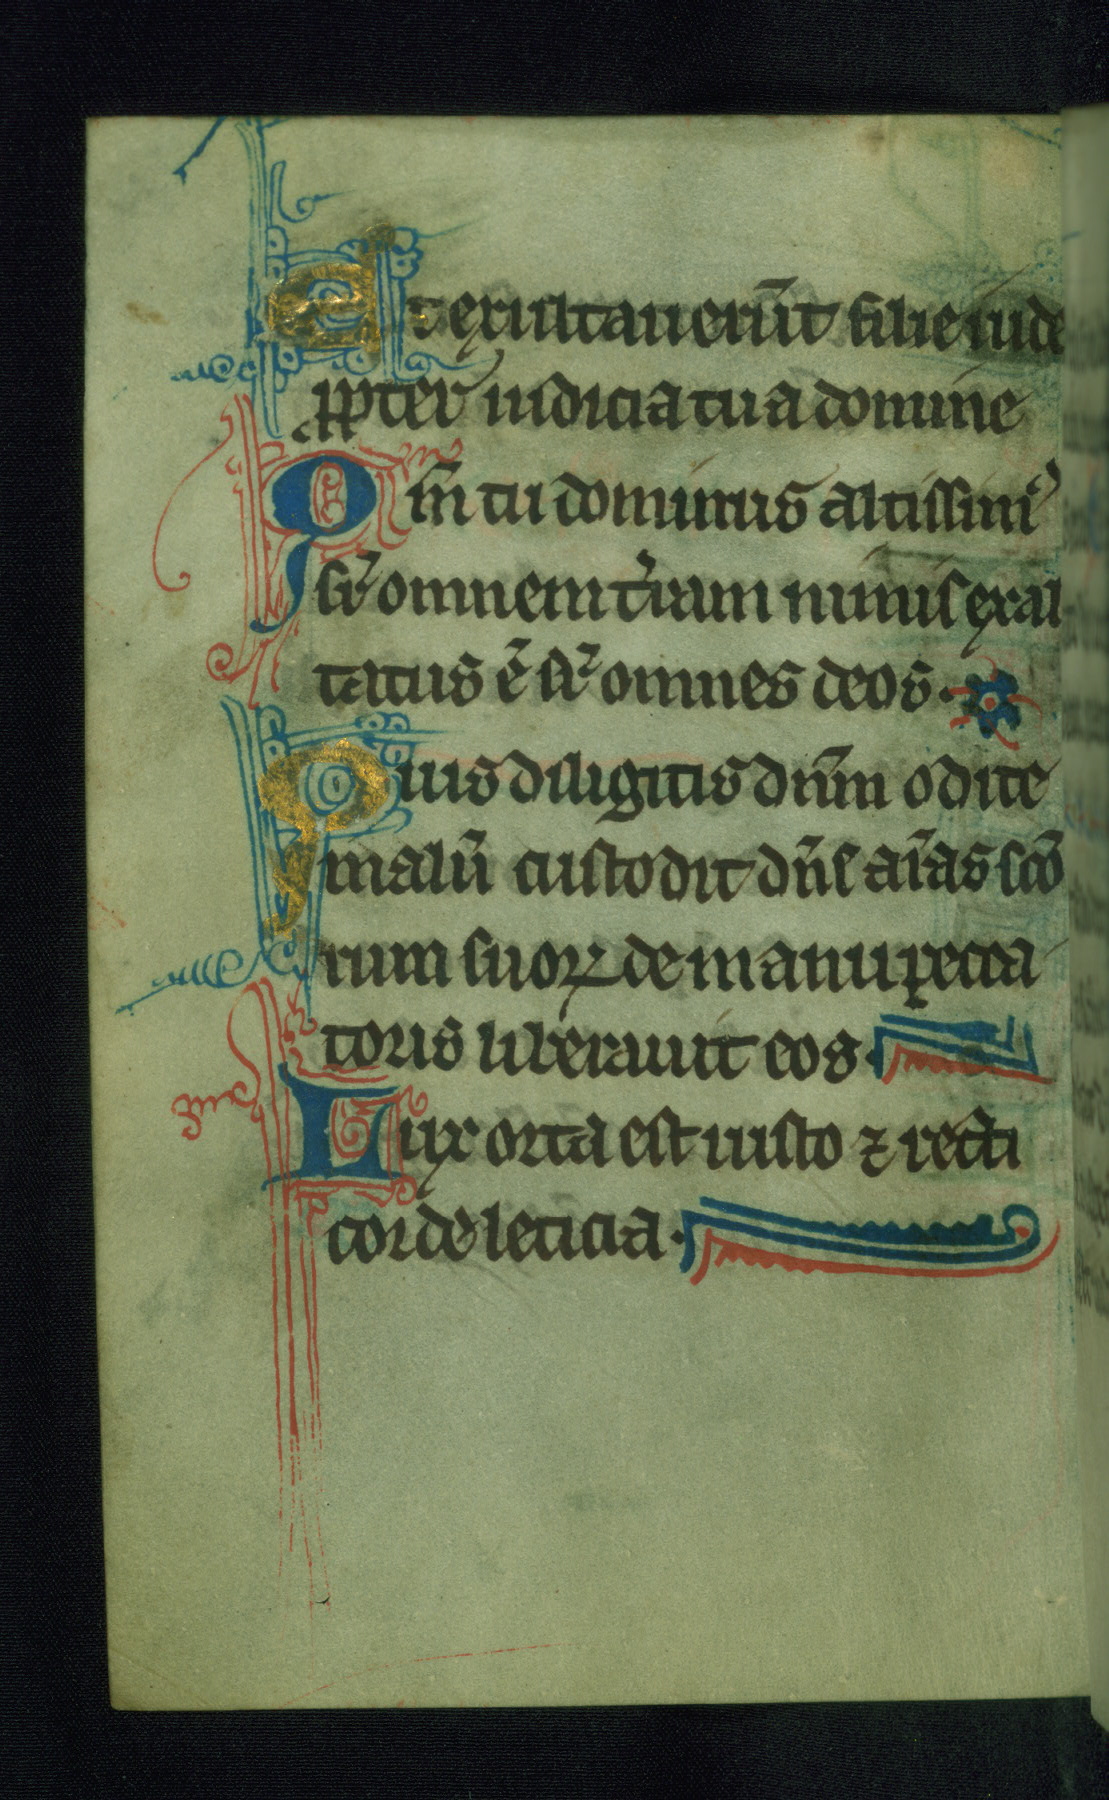 Et exultauerūt filie iude
ꝓpter iudicia tua domine
Qm̄ tu dominus altissimꝰ
sr̄ omnem t̄ram nimis exal
tatus ē sr̄ omnes deos.
Quis diligitis dn̄m odite
malū custodit dn̄s aīas scō
rum suoꝝ de manu ꝑecca
toris liberauit eos.
Lux orta est iusto ⁊ recti
corde leticia.